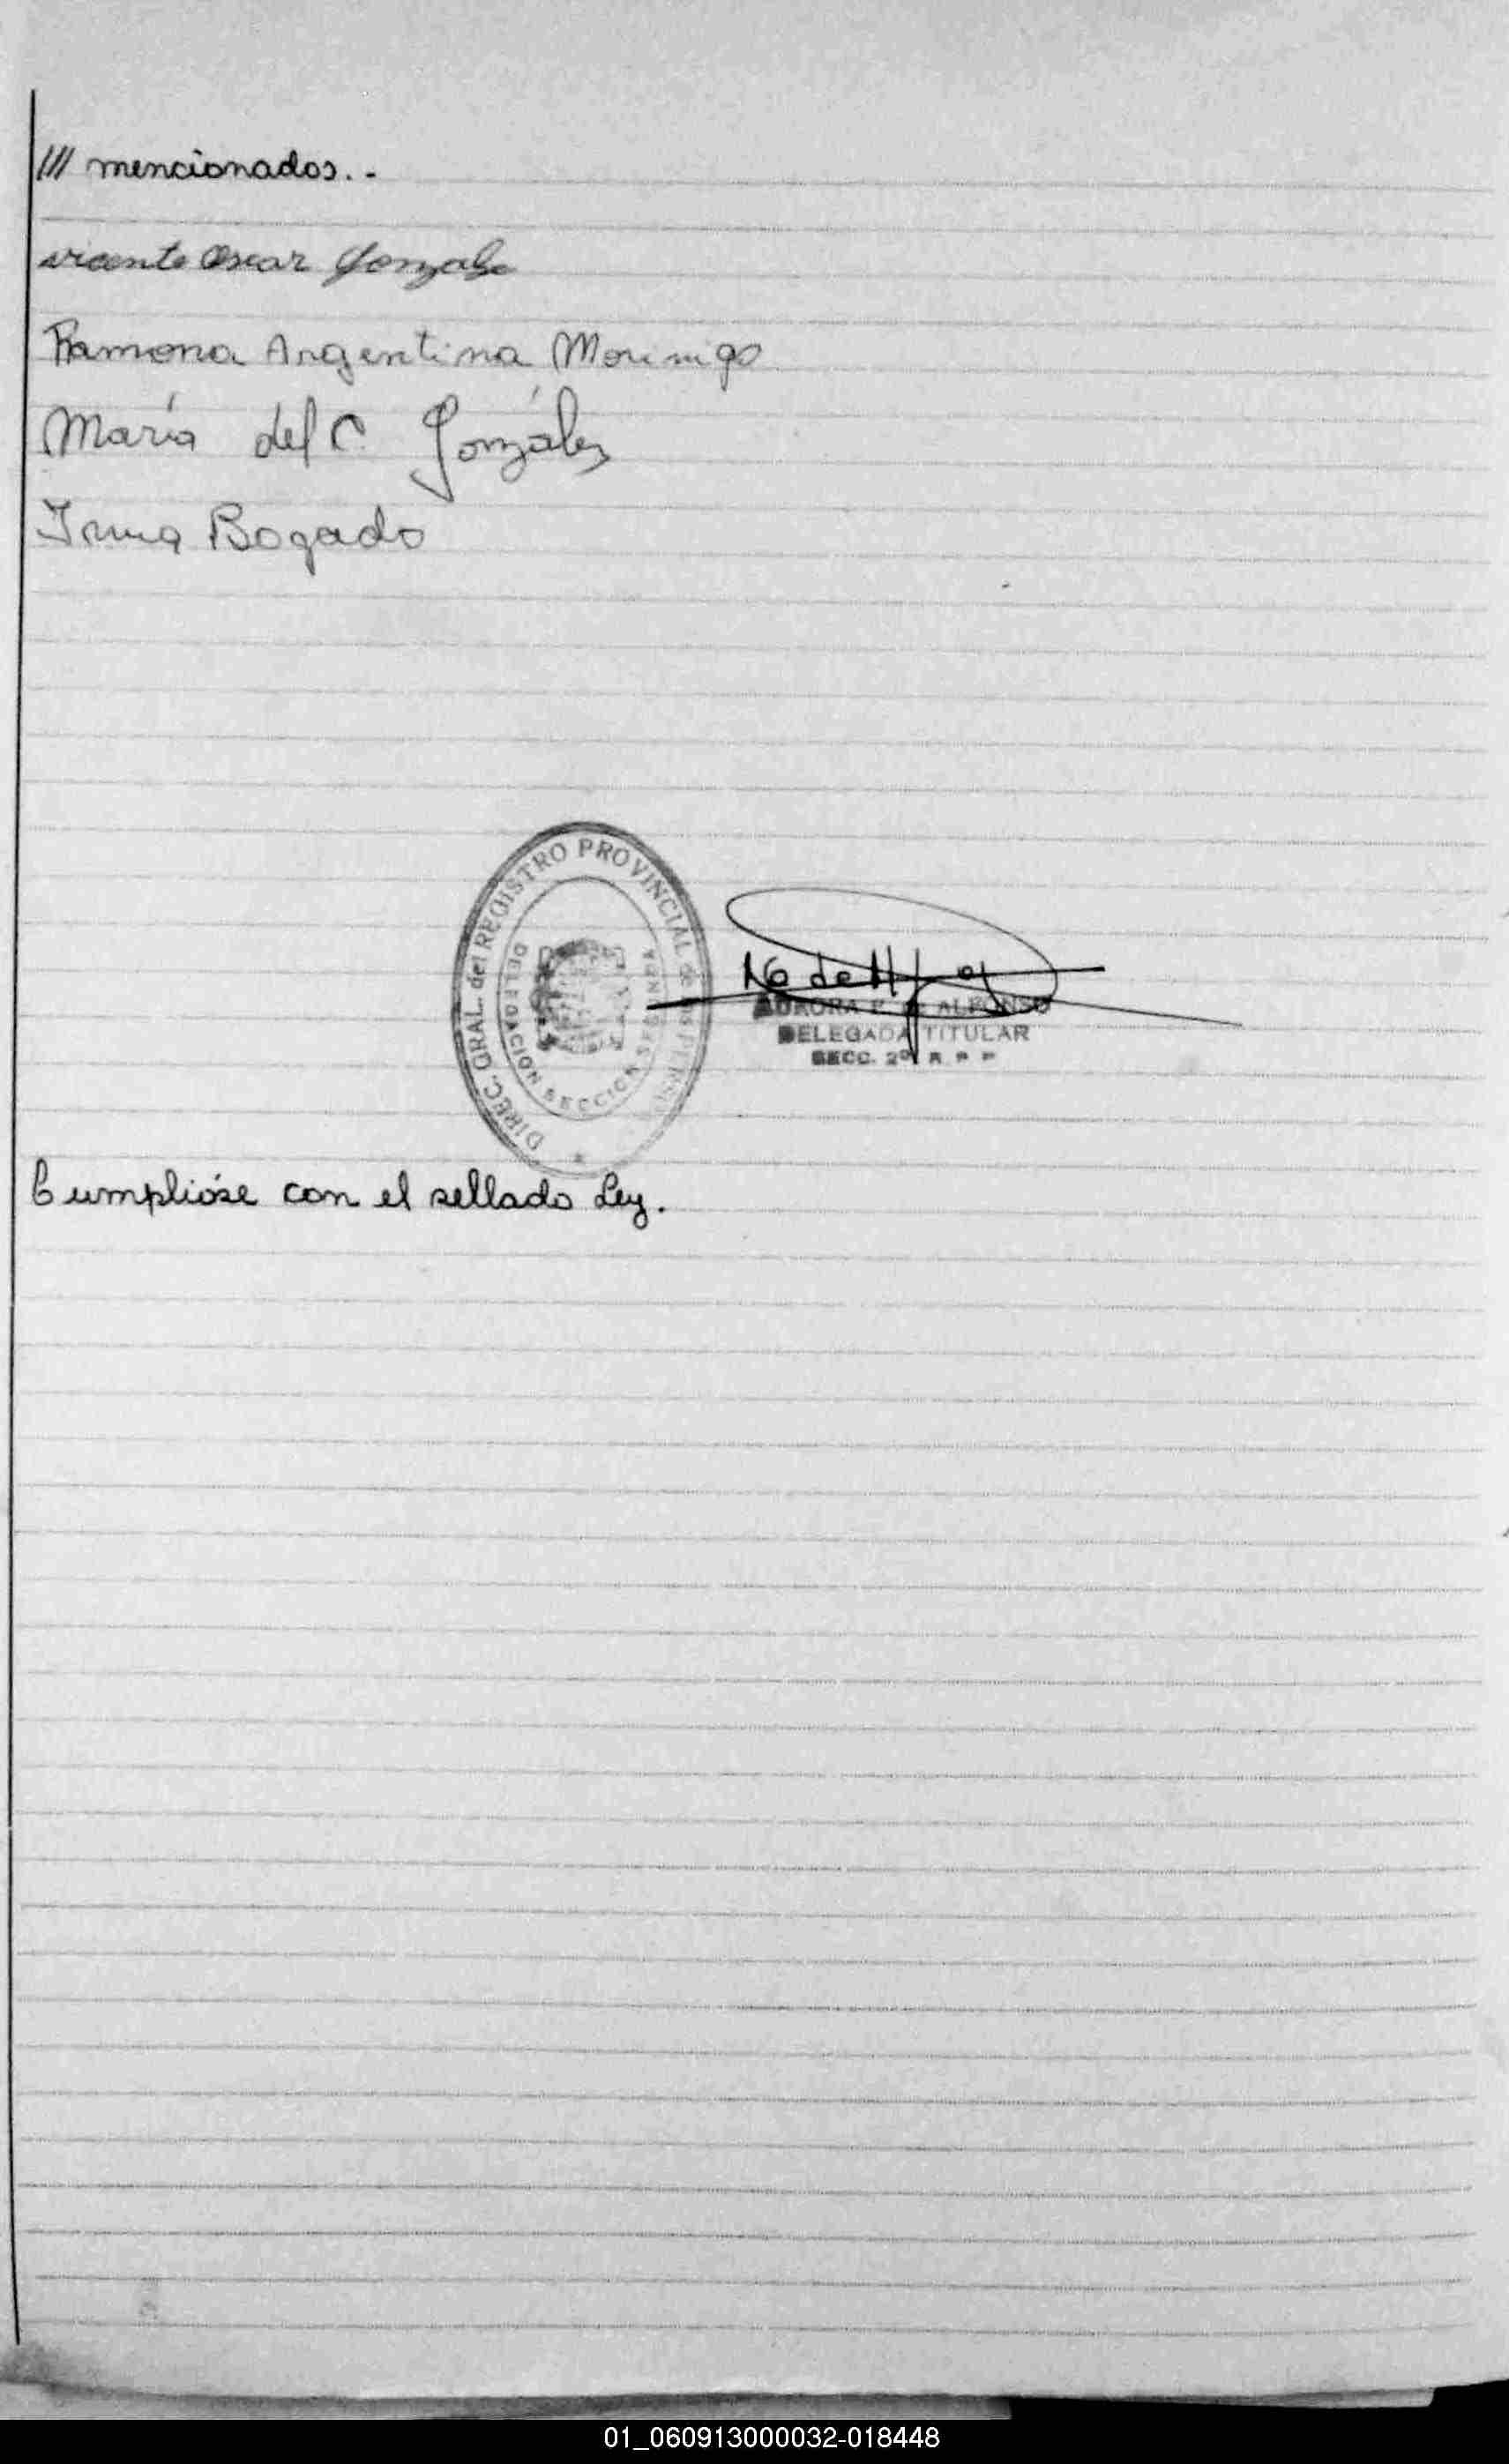 /// mencionados. -
vicente Oscar Gonzalez
Ramona Argentina Morinigo
María del C. González
Irma Bogado
DIREC. GRAL. del REGISTRO PROVINCIAL de las PERS
DELEGACION SECCION SEGUNDA
AURORA P. de ALFONSO
DELEGADA TITULAR
SECC. 2º R P P
Cumplióse con el sellado Ley.
01_060913000032-018448